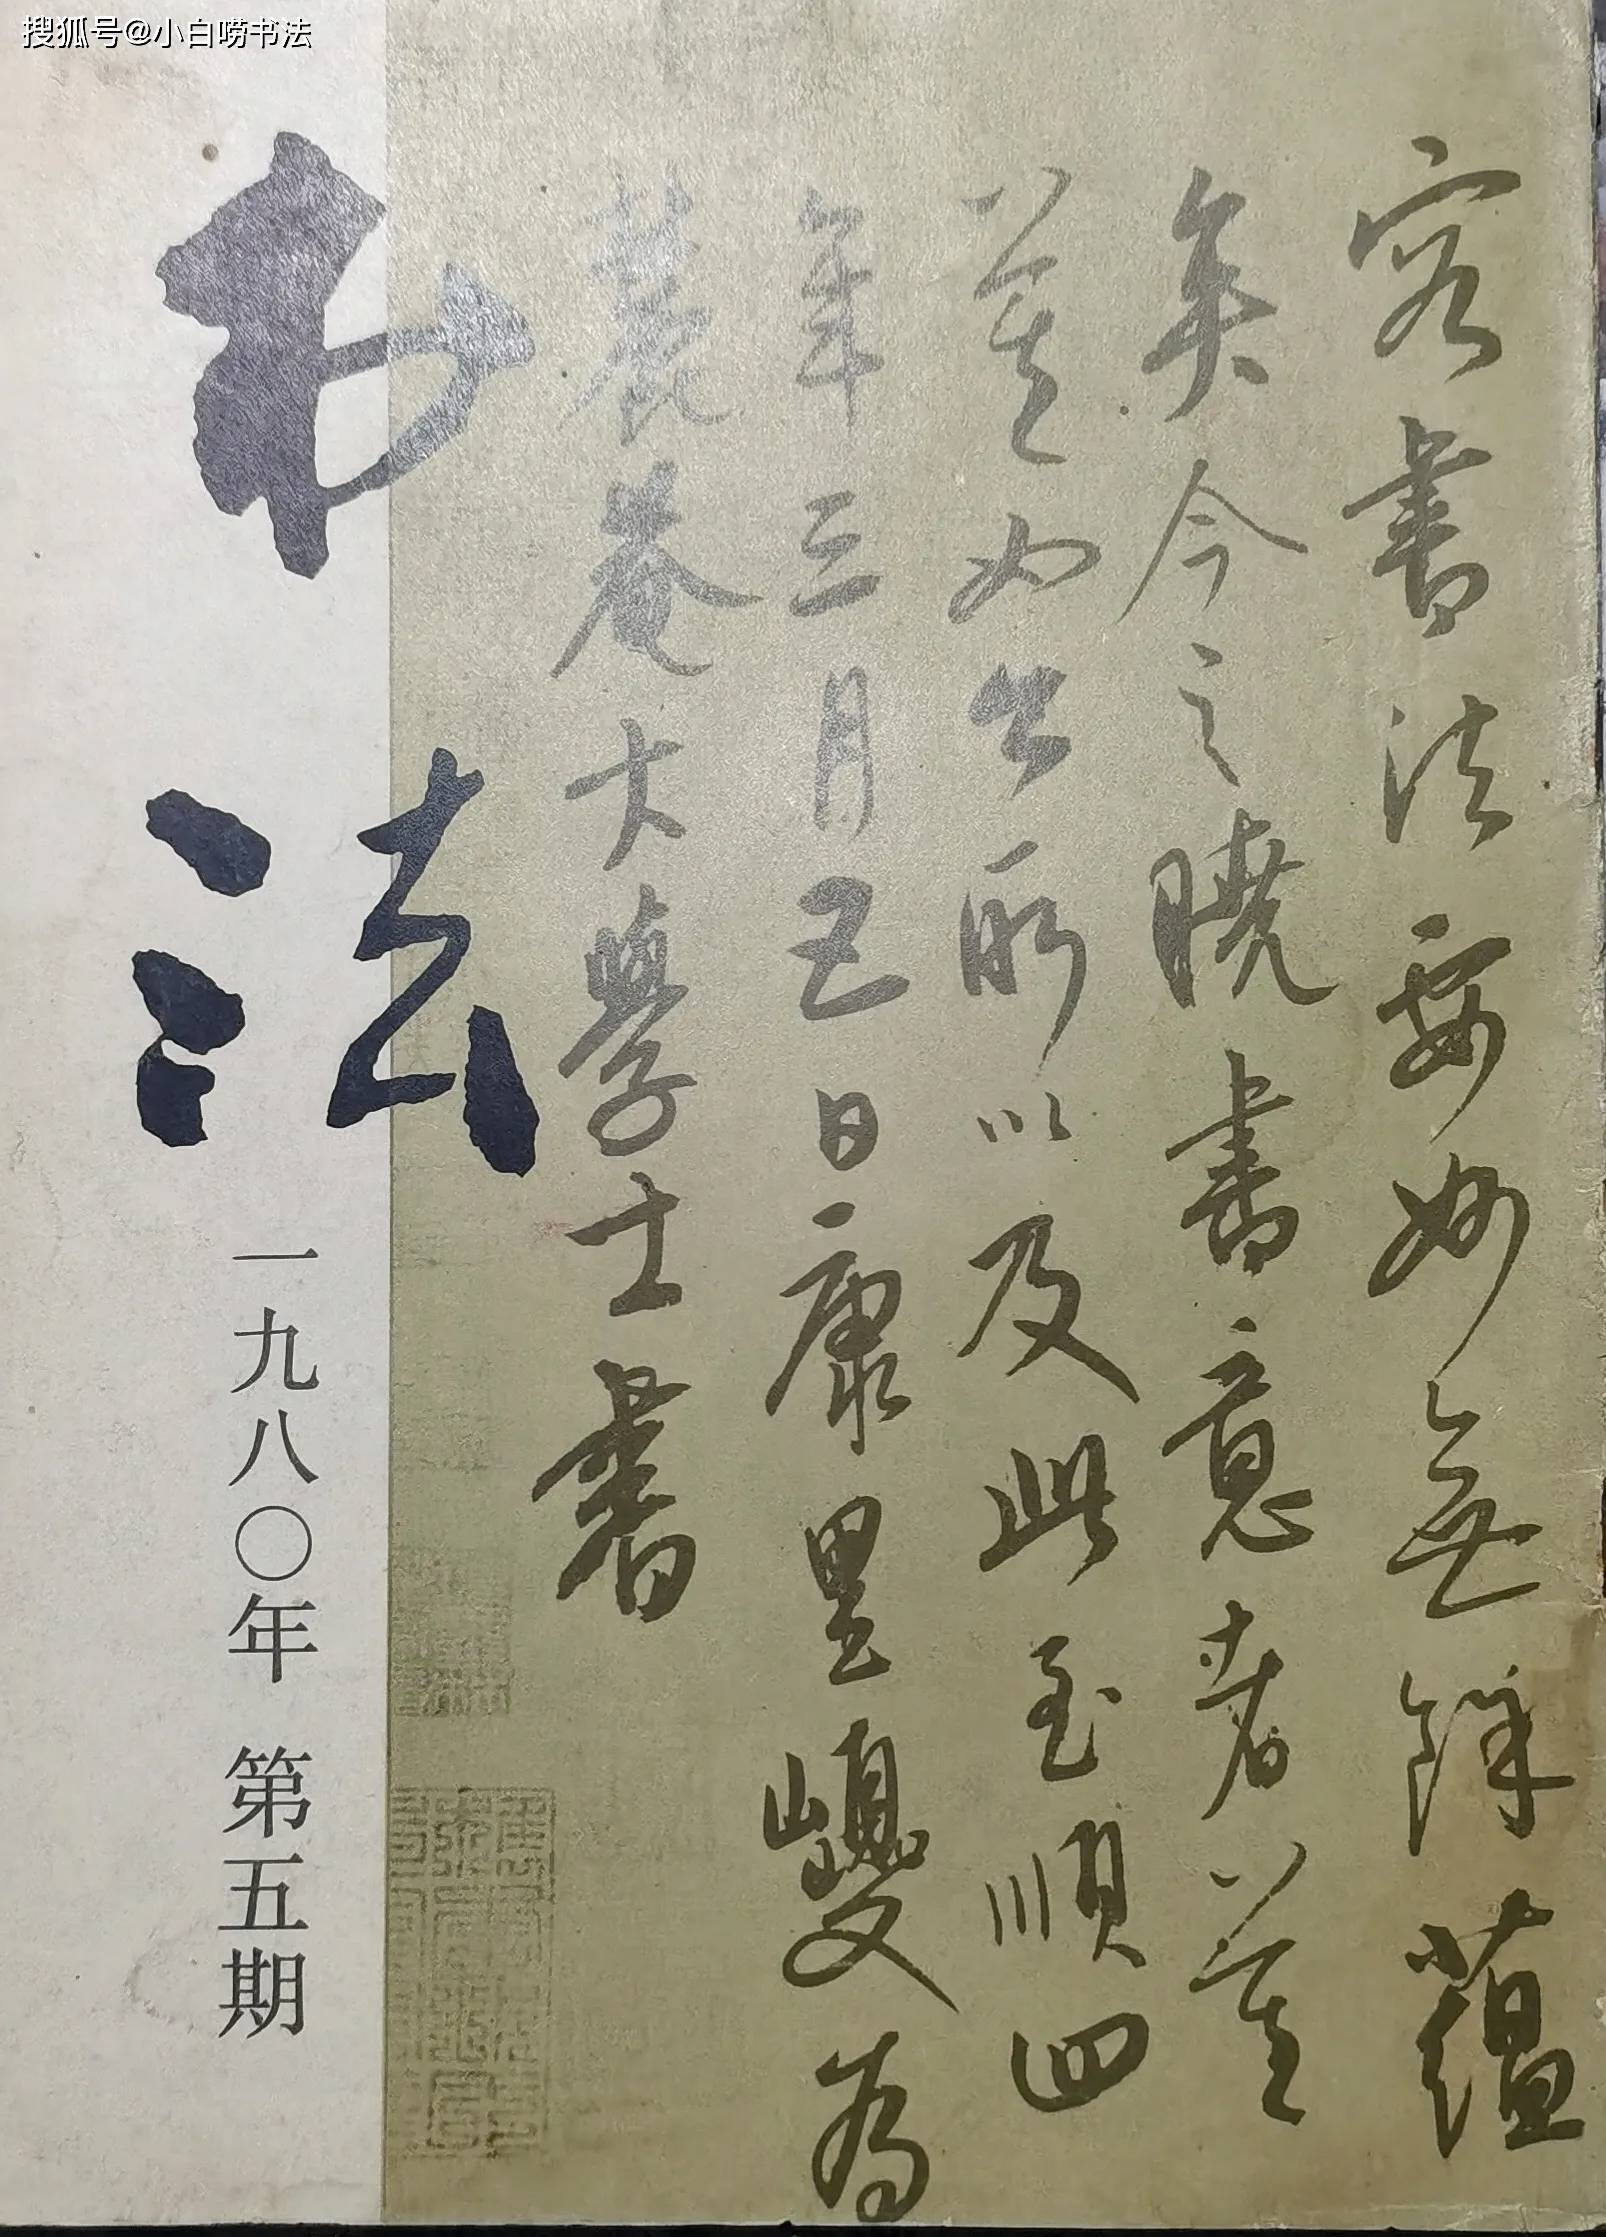 搜狐号@小白唠书法
书法
一九八〇年 第五期
容書法要妙無餘蘊
矣今之曉書意者莫
莫如公所以及此至順四
年三月五日康里巎為
麓菴大學士書